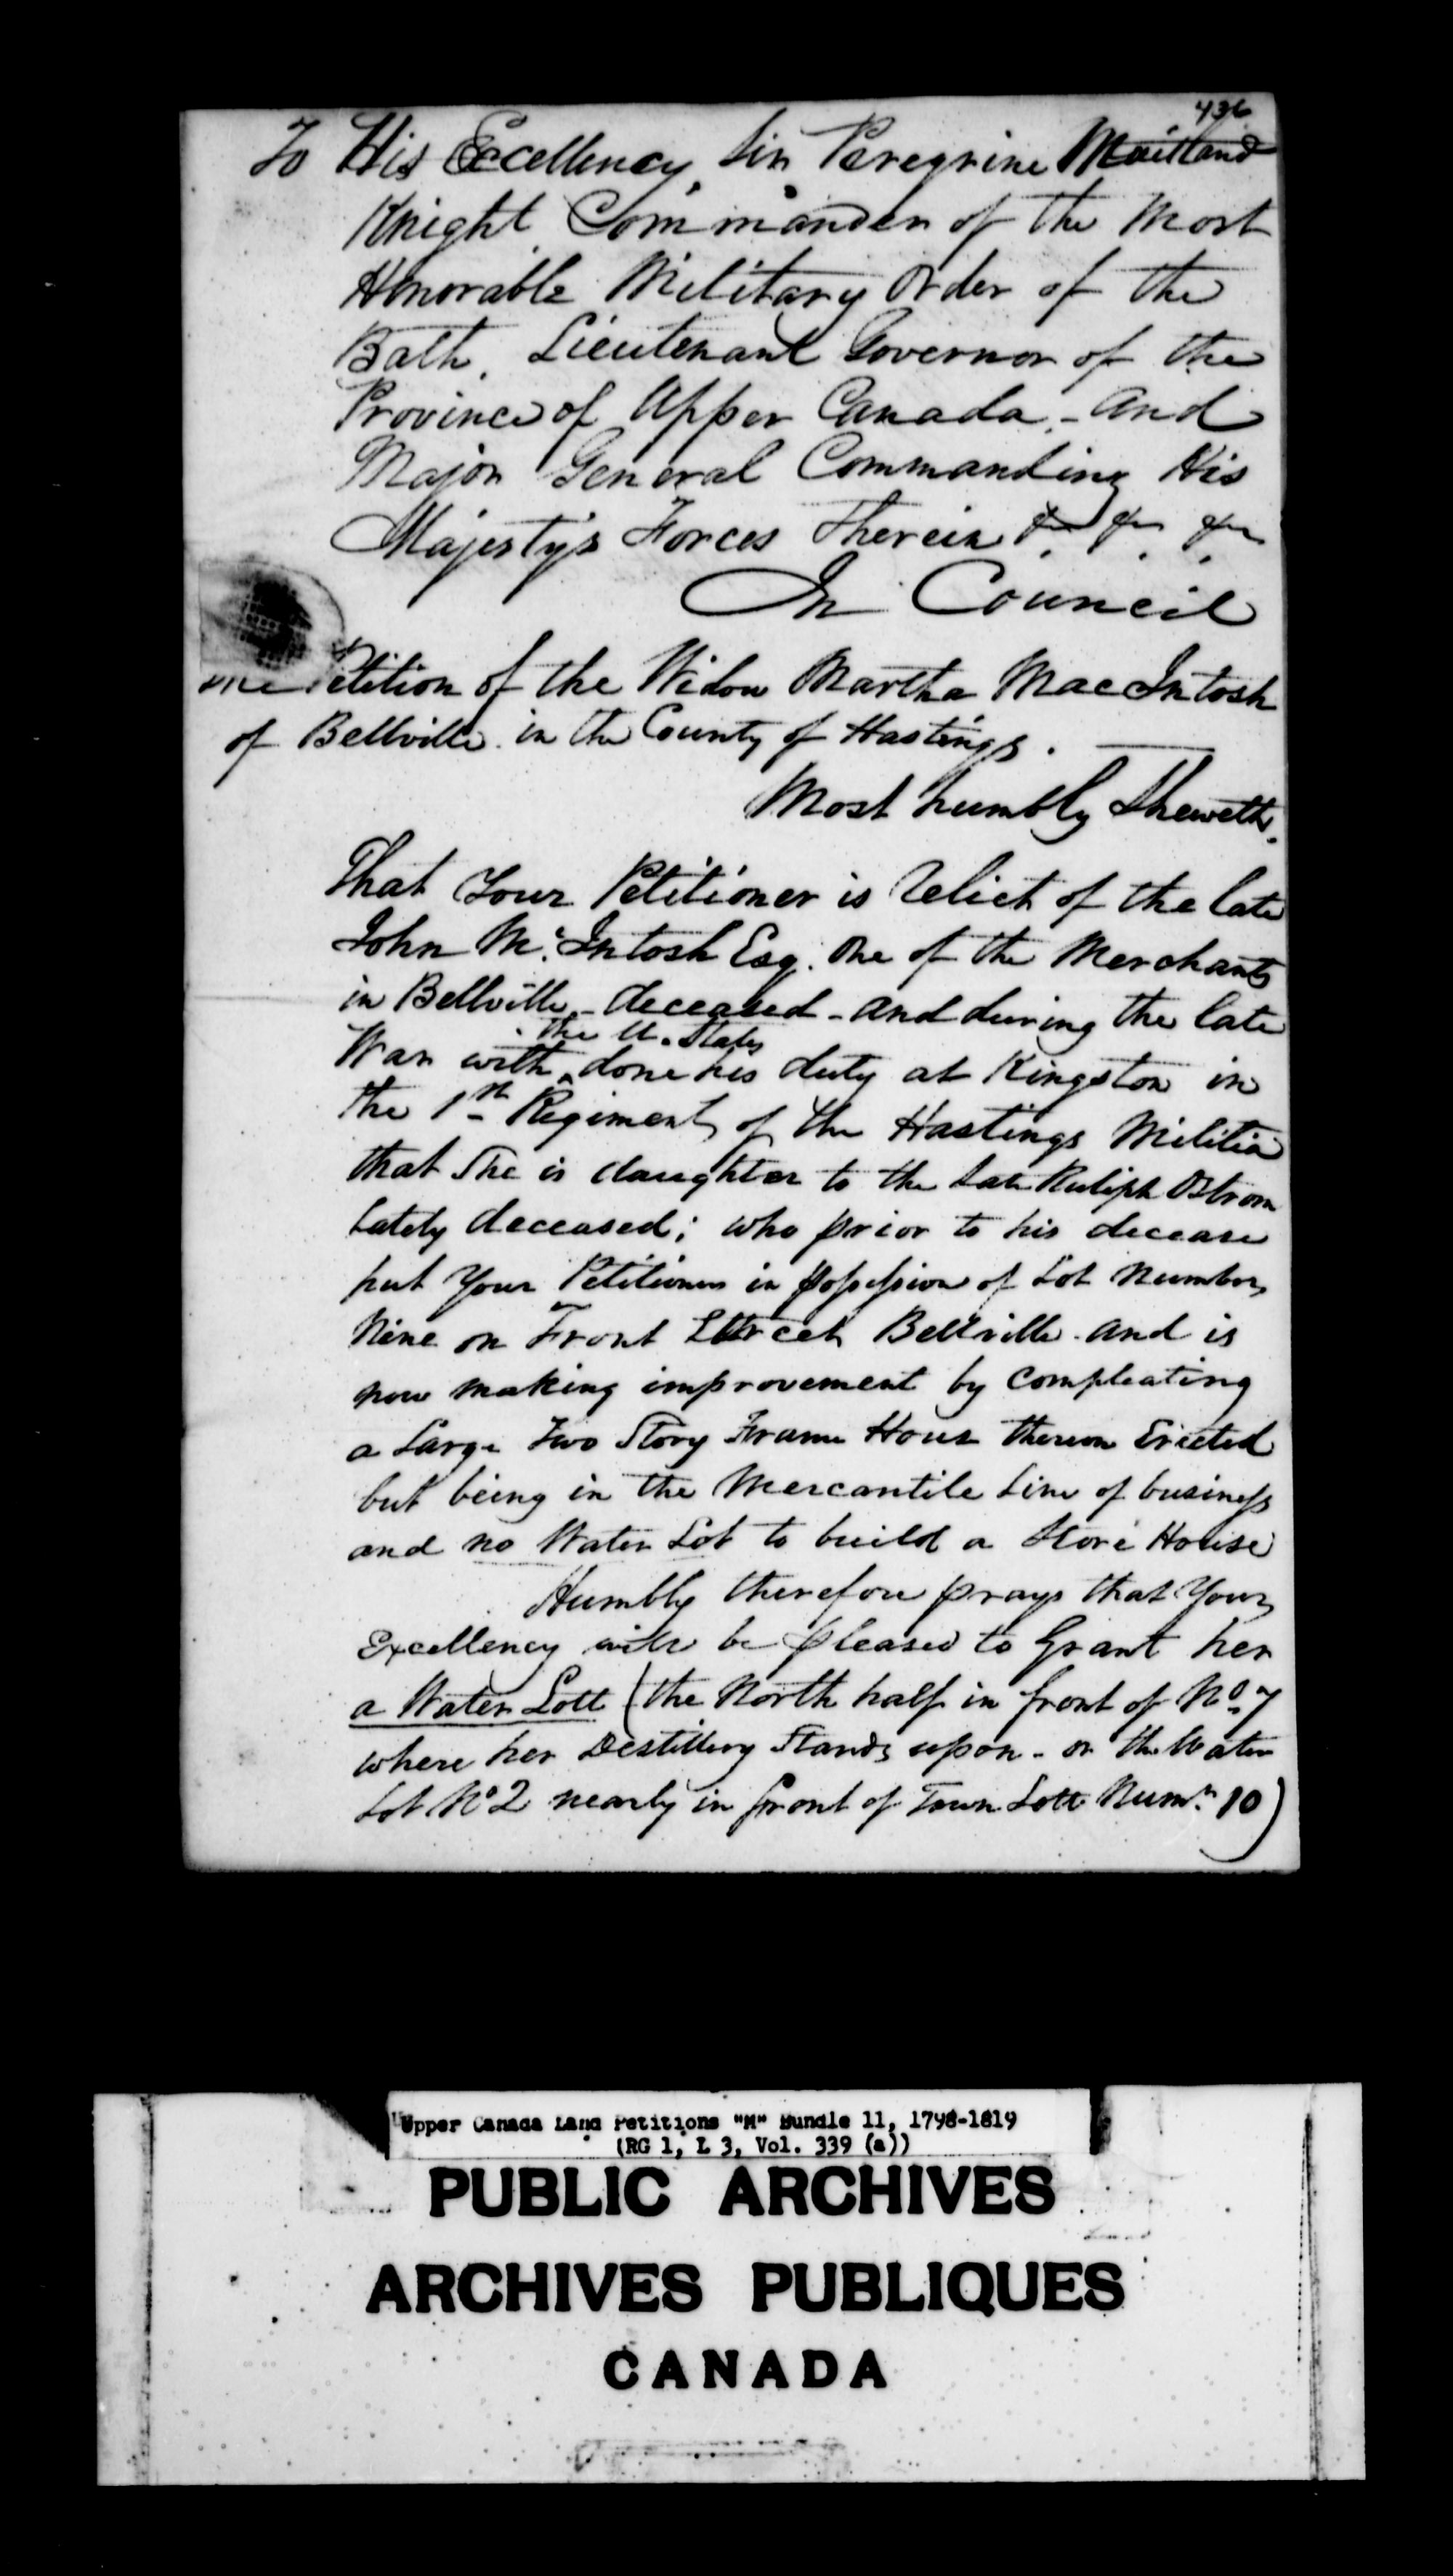 436
To His Excellency Sir Peregrine Maitland
Knight Commander of the Most
Honorable Military Order of the
Bath, Lieutenant Governor of the
Province of Upper Canada, - and
Major General Commanding His
Majesty's Forces Therein &c &c &c
In Council
The Petition of the Widow Martha MacIntosh
of Bellville in the County of Hastings.
Most humbly Sheweth,
That Your Petitioner is Relict of the late
John Mc.Intosh Esq. One of the Merchants
in Bellville, - deceased - and during the late
the U. States
War with ^ done his duty at Kingston in
the 1st Regiment of the Hastings Militia
that She is daughter to the Late Ruliph Ostrom
Lately deceased; who prior to his decease
put Your Petitioner in possession of Lot Number
Nine on Front Street Bellville - and is
now making improvement by Compleating
a Large Two Story Frame Hous thereon Erected
but being in the Mercantile Line of business
and no Water Lot to build a Store House
Humbly therefore prays that Your
Excellency will be pleased to Grant her
a Water Lott (the North half in front of No. 7
where her Destillery Stands upon - or the Water
Lot No 2 nearly in front of Town Lott Numr. 10)
Upper Canada Land Petitions "M" Bundle 11, 1798-1819
(RG 1, L 3, Vol. 339 (a))
PUBLIC ARCHIVES
ARCHIVES PUBLIQUES
CANADA